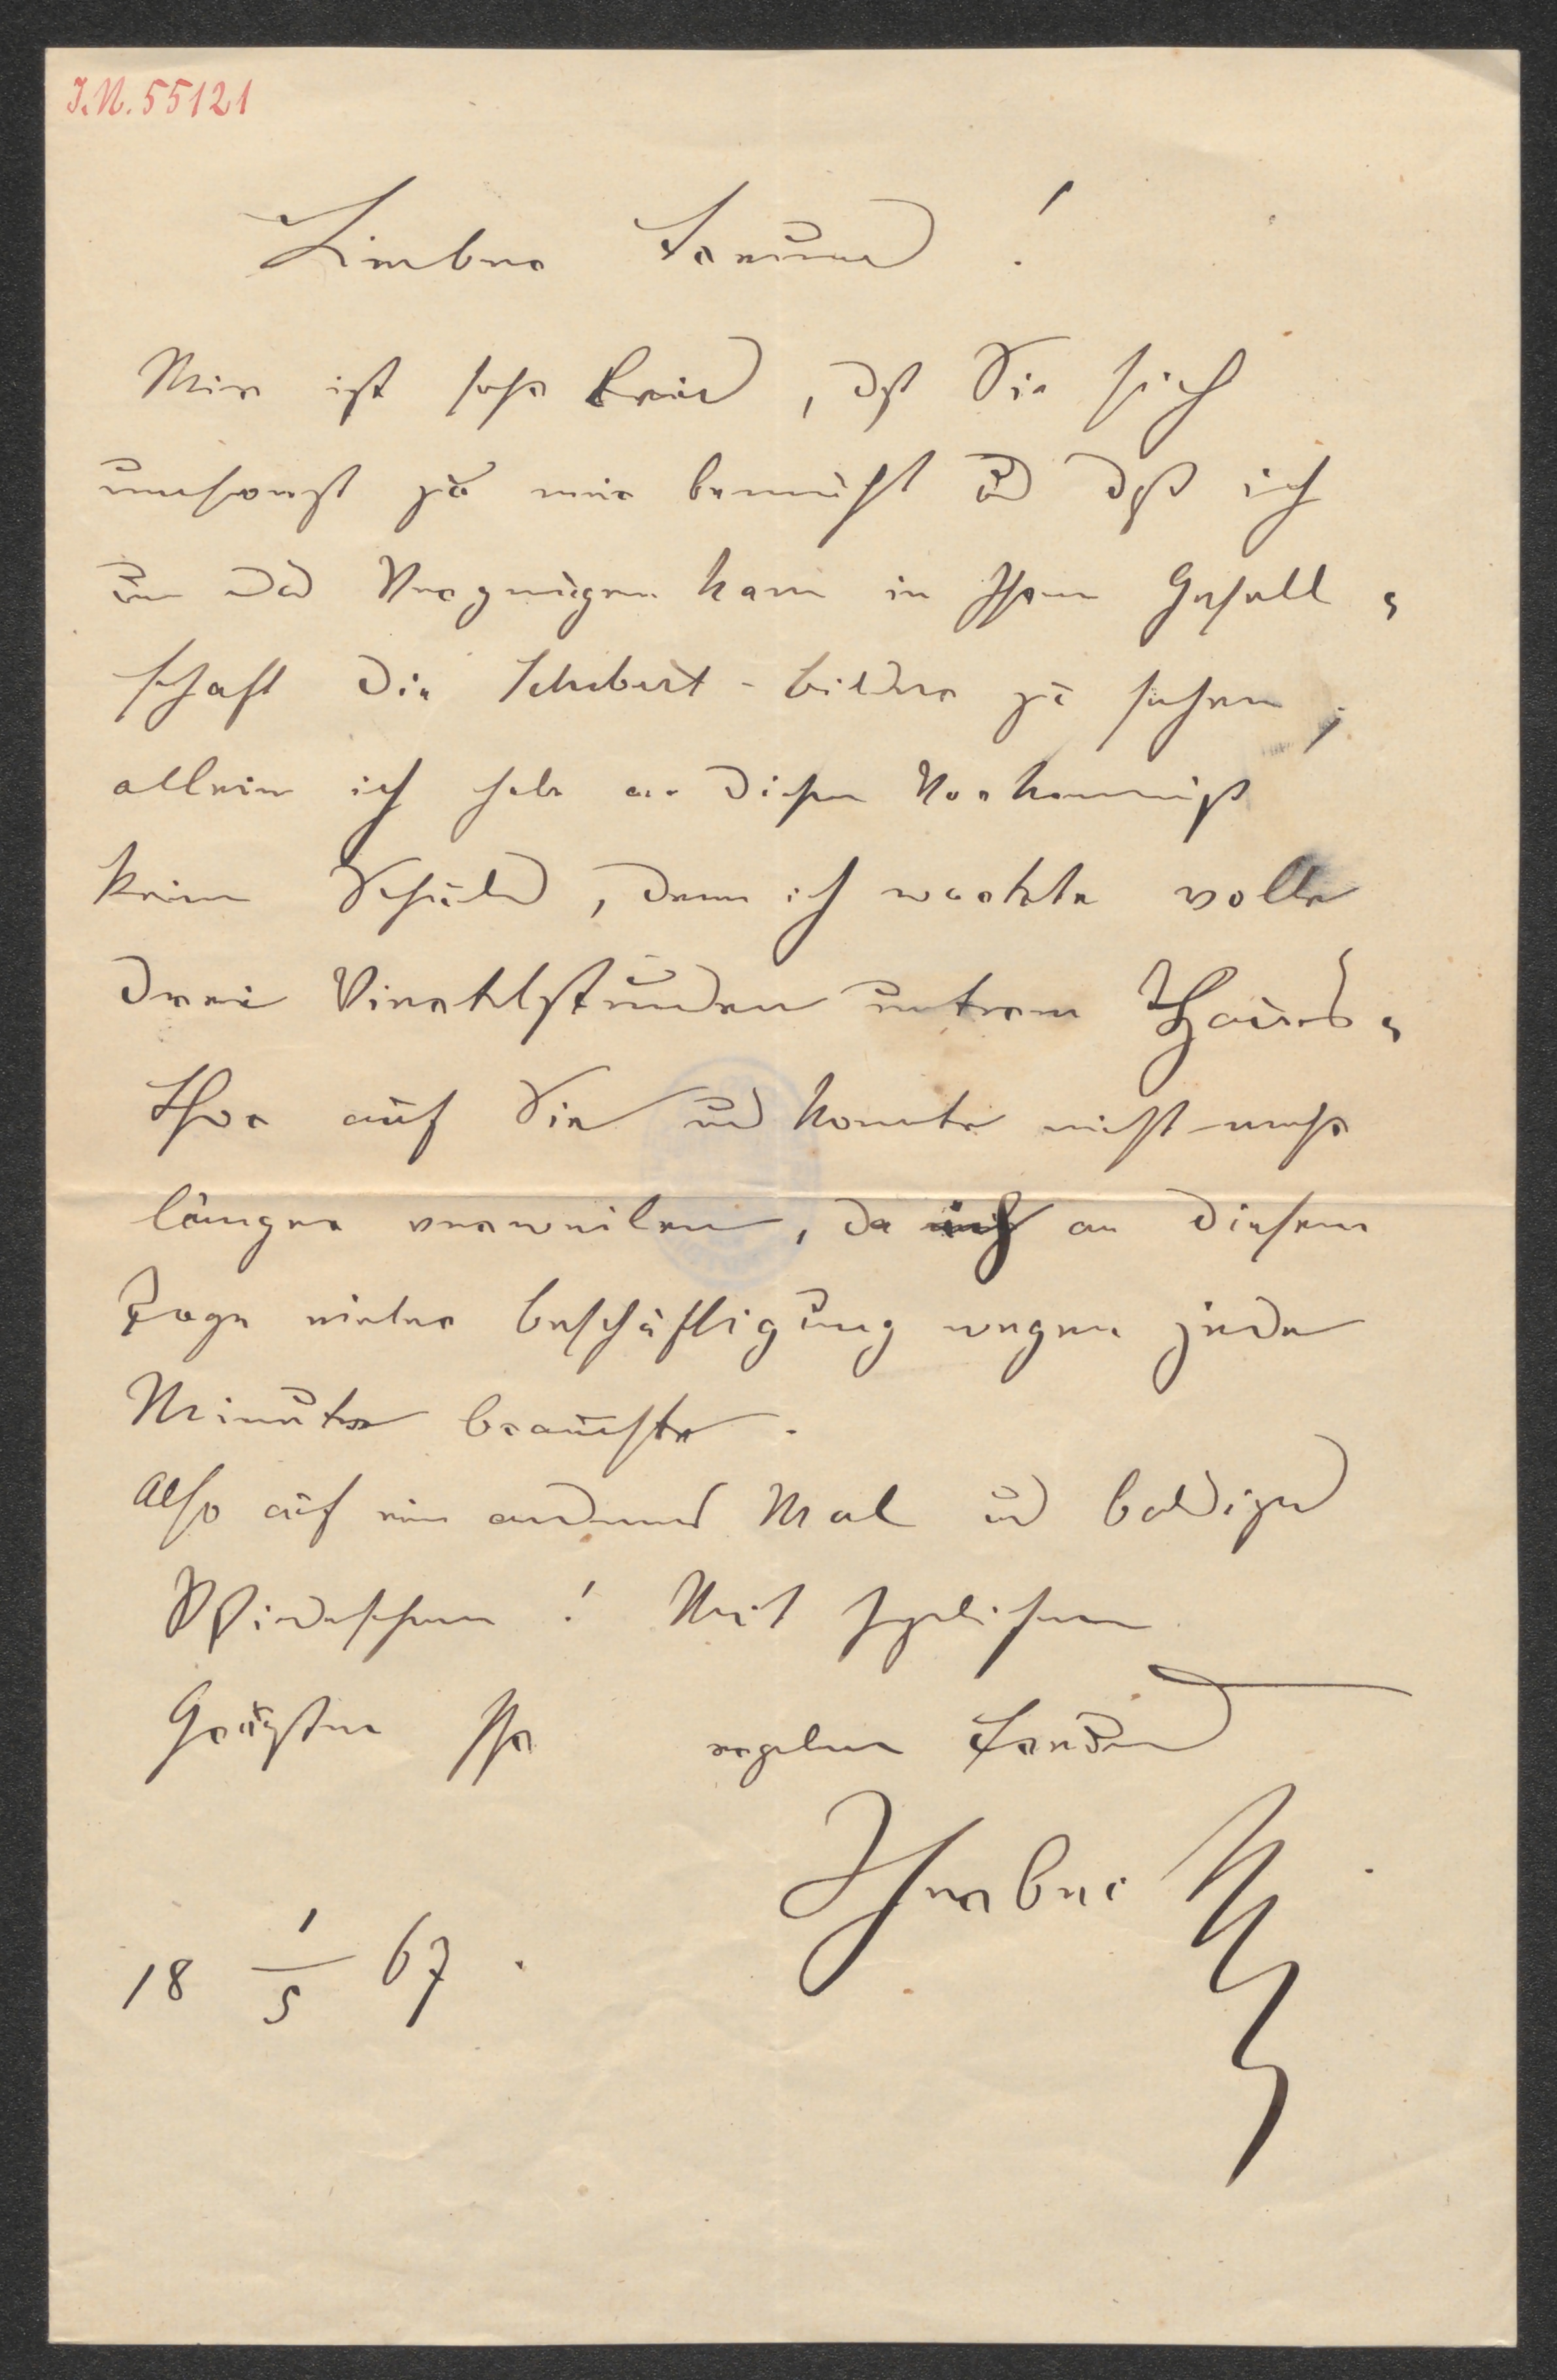 I.N. 55121
Lieber Freund!
Mir ist sehr leid, dß Sie sich
umsonst zu mir bemüht und dß ich
um das Vergnügen kam in Ihrer Gesell=
schaft die Schubert-bilder zu sehen;
allein ich habe an diesem Vorkommniß
keine Schuld, denn ich wartete volle
drei Viertelstunden unterm Haus=
thor auf Sie und konnte nicht mehr
länger verweilen, da ich an diesem
Tage vieler beschäftigung wegen jede
Minute brauchte.
Also auf ein anderes Mal und baldiges
Wiedersehen! Mit herzlichen
Grüßen Ihr ergebener Freund
Herbeck
18 1/5 67.